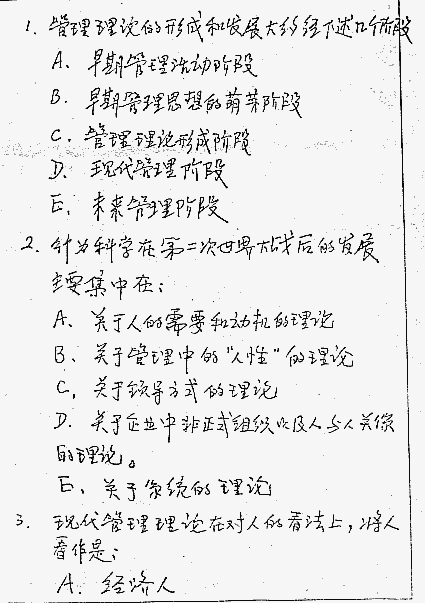 1. 管理理论的形成和发展大约经下述几个阶段
A. 早期管理活动阶段
B. 早期管理思想的萌芽阶段
C. 管理理论形成阶段
D. 现代管理阶段
E. 未来管理阶段
2. 行为科学在第二次世界大战后的发展
主要集中在:
A、关于人的需要和动机的理论
B、关于管理中的“人性”的理论
C, 关于领导方式的理论
D. 关于企业中非正式组织以及人与人关係
的理论。
E、关于系统的理论
3. 现代管理理论在对人的看法上,将人
看作是:
A. 经济人